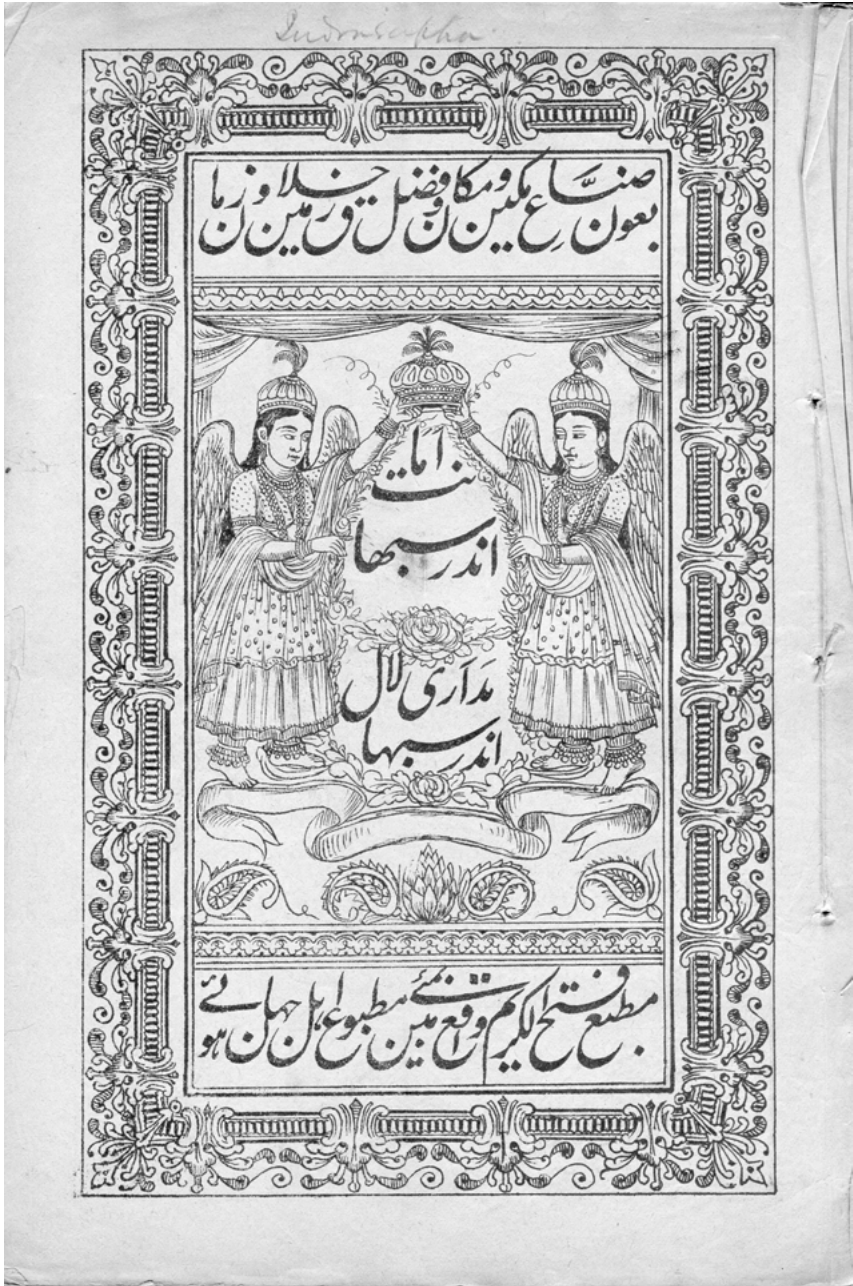 Indrasabha
بعون صنّاع مکین و مکان و فضل خلاق زمین و زمان
امانت
اندرسبھا
مداری لال
اندرسبہا
مطبع فتح الکریم واقع بمبئے مین مطبوع اہل جہان ہوئے